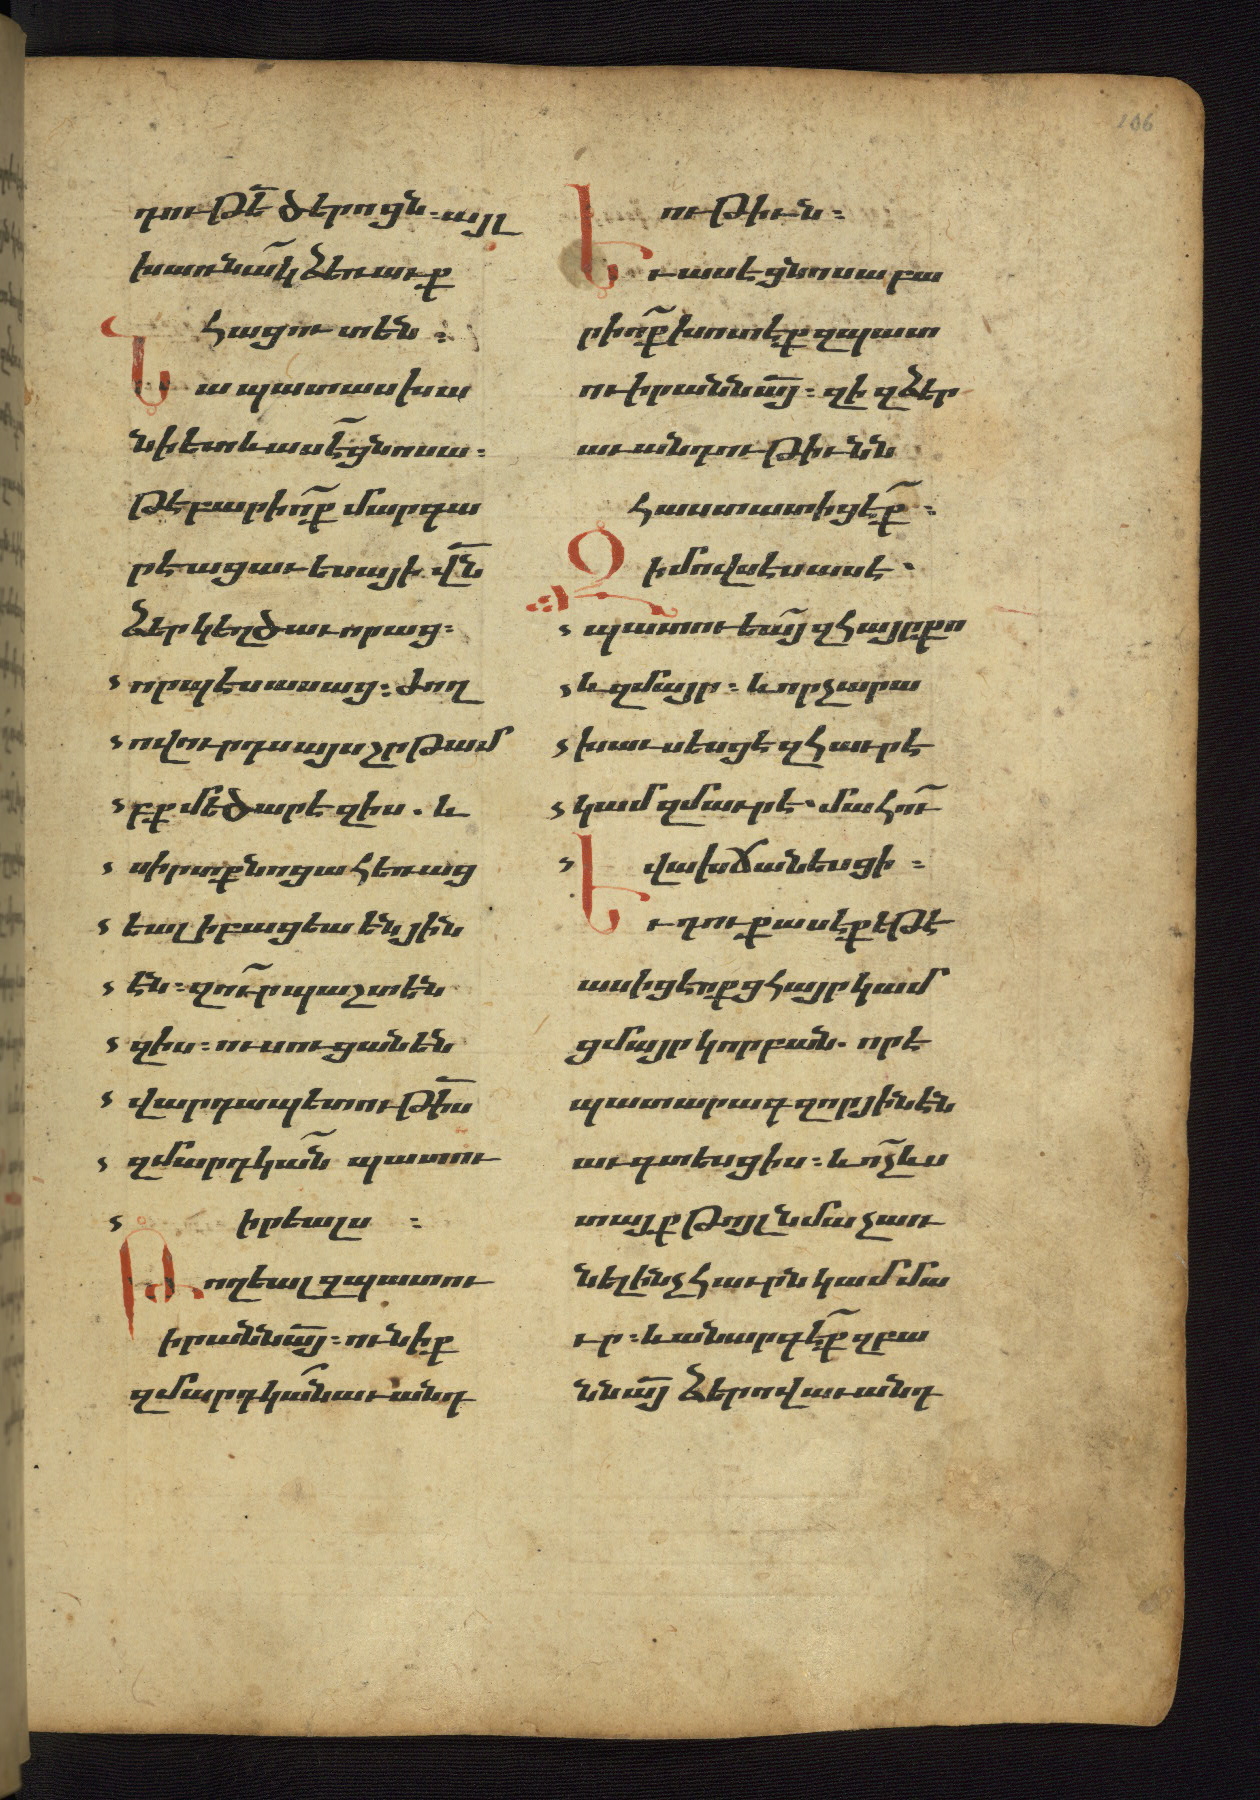 106
դութե̄ ծերոցն. այլ
խառնակ ձեռաւք
հաց ուտեն :
Նա պատասխա
նի ետ և ասէ ցնոսա :
թէ բարիո̄ք մարգա
րէացաւ եսայի վն̄
ձեր կեղծաւորաց :
որպէս ասաց : ժող
ովուրդս այս շրթամ
բք մեծարէ զիս . և
սիրտք նոցա հեռաց
եալ ի բացեա են յին
էն : զուր̄ պաշտեն
զիս : ուսուցանեն
վարդապետութի̄ս
զմարդկան̄ պատու
իրեալս :
Թողեալ զպատու
իրանն ա̄յ : ունիք
զմարդկան̄ աւանդ
ութիւն :
Եւ ասէ ցնոսա բա
րիո̄ք խոտէք զպատ
ուիրանն ա̄յ : զի զձեր
աւանդութիւնն
հաստատիցէք̄ :
Զի մովսէս ասէ .
պատուեա̄ զհայր քո
և զմայր : և որ չարա
խաւսեսցէ զհաւրէ
կամ զմաւրէ . մահու̄
վախճանեսցի :
Եւ դուք ասէք եթէ
ասիցէ ոք ցհայր կամ
ցմայր կորբան . որ է
պատարագ զոր յինէն
աւգտեսցիս : և ո̄չ ևս
տայք թոյլ նմա չառ
նել ինչ հաւրն կամ մա
ւր : և անարգէք̄ զբա
նն ա̄յ ձերով աւանդ